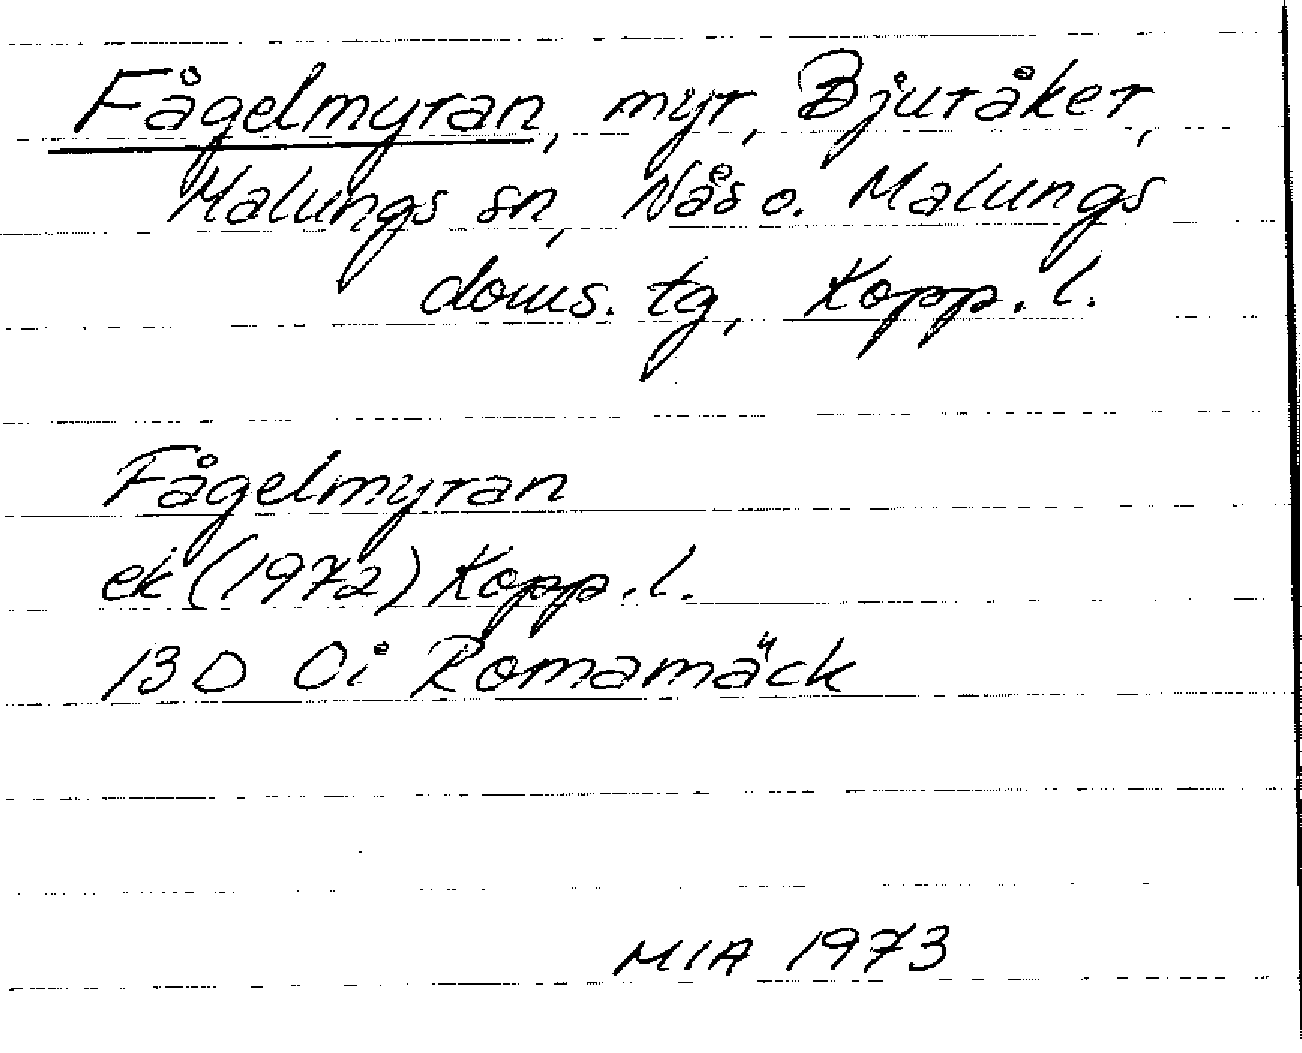 Fågelmyran, myr, Bjuråker,
Malungs sn, Nås o. Malungs
doms. tg, Kopp. l.
Fågelmyran
ek (1972) Kopp. l.
13 D 0i Romamäck
MIA 1973